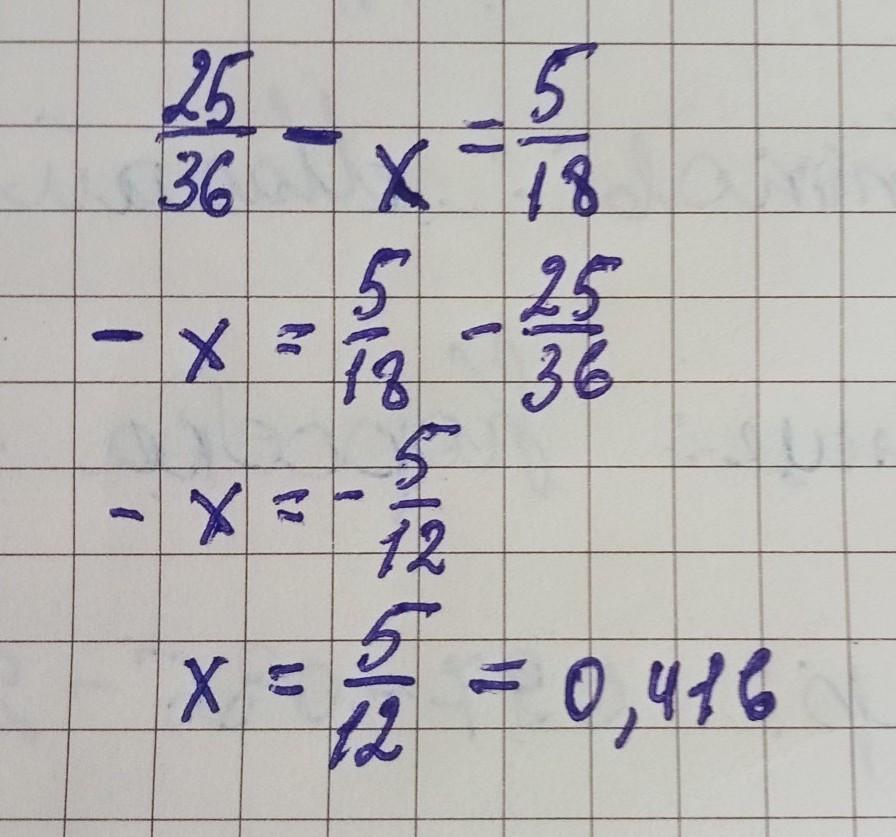 25/36 - x = 5/18
- x = 5/18 - 25/36
- x = - 5/12
x = 5/12 = 0,416